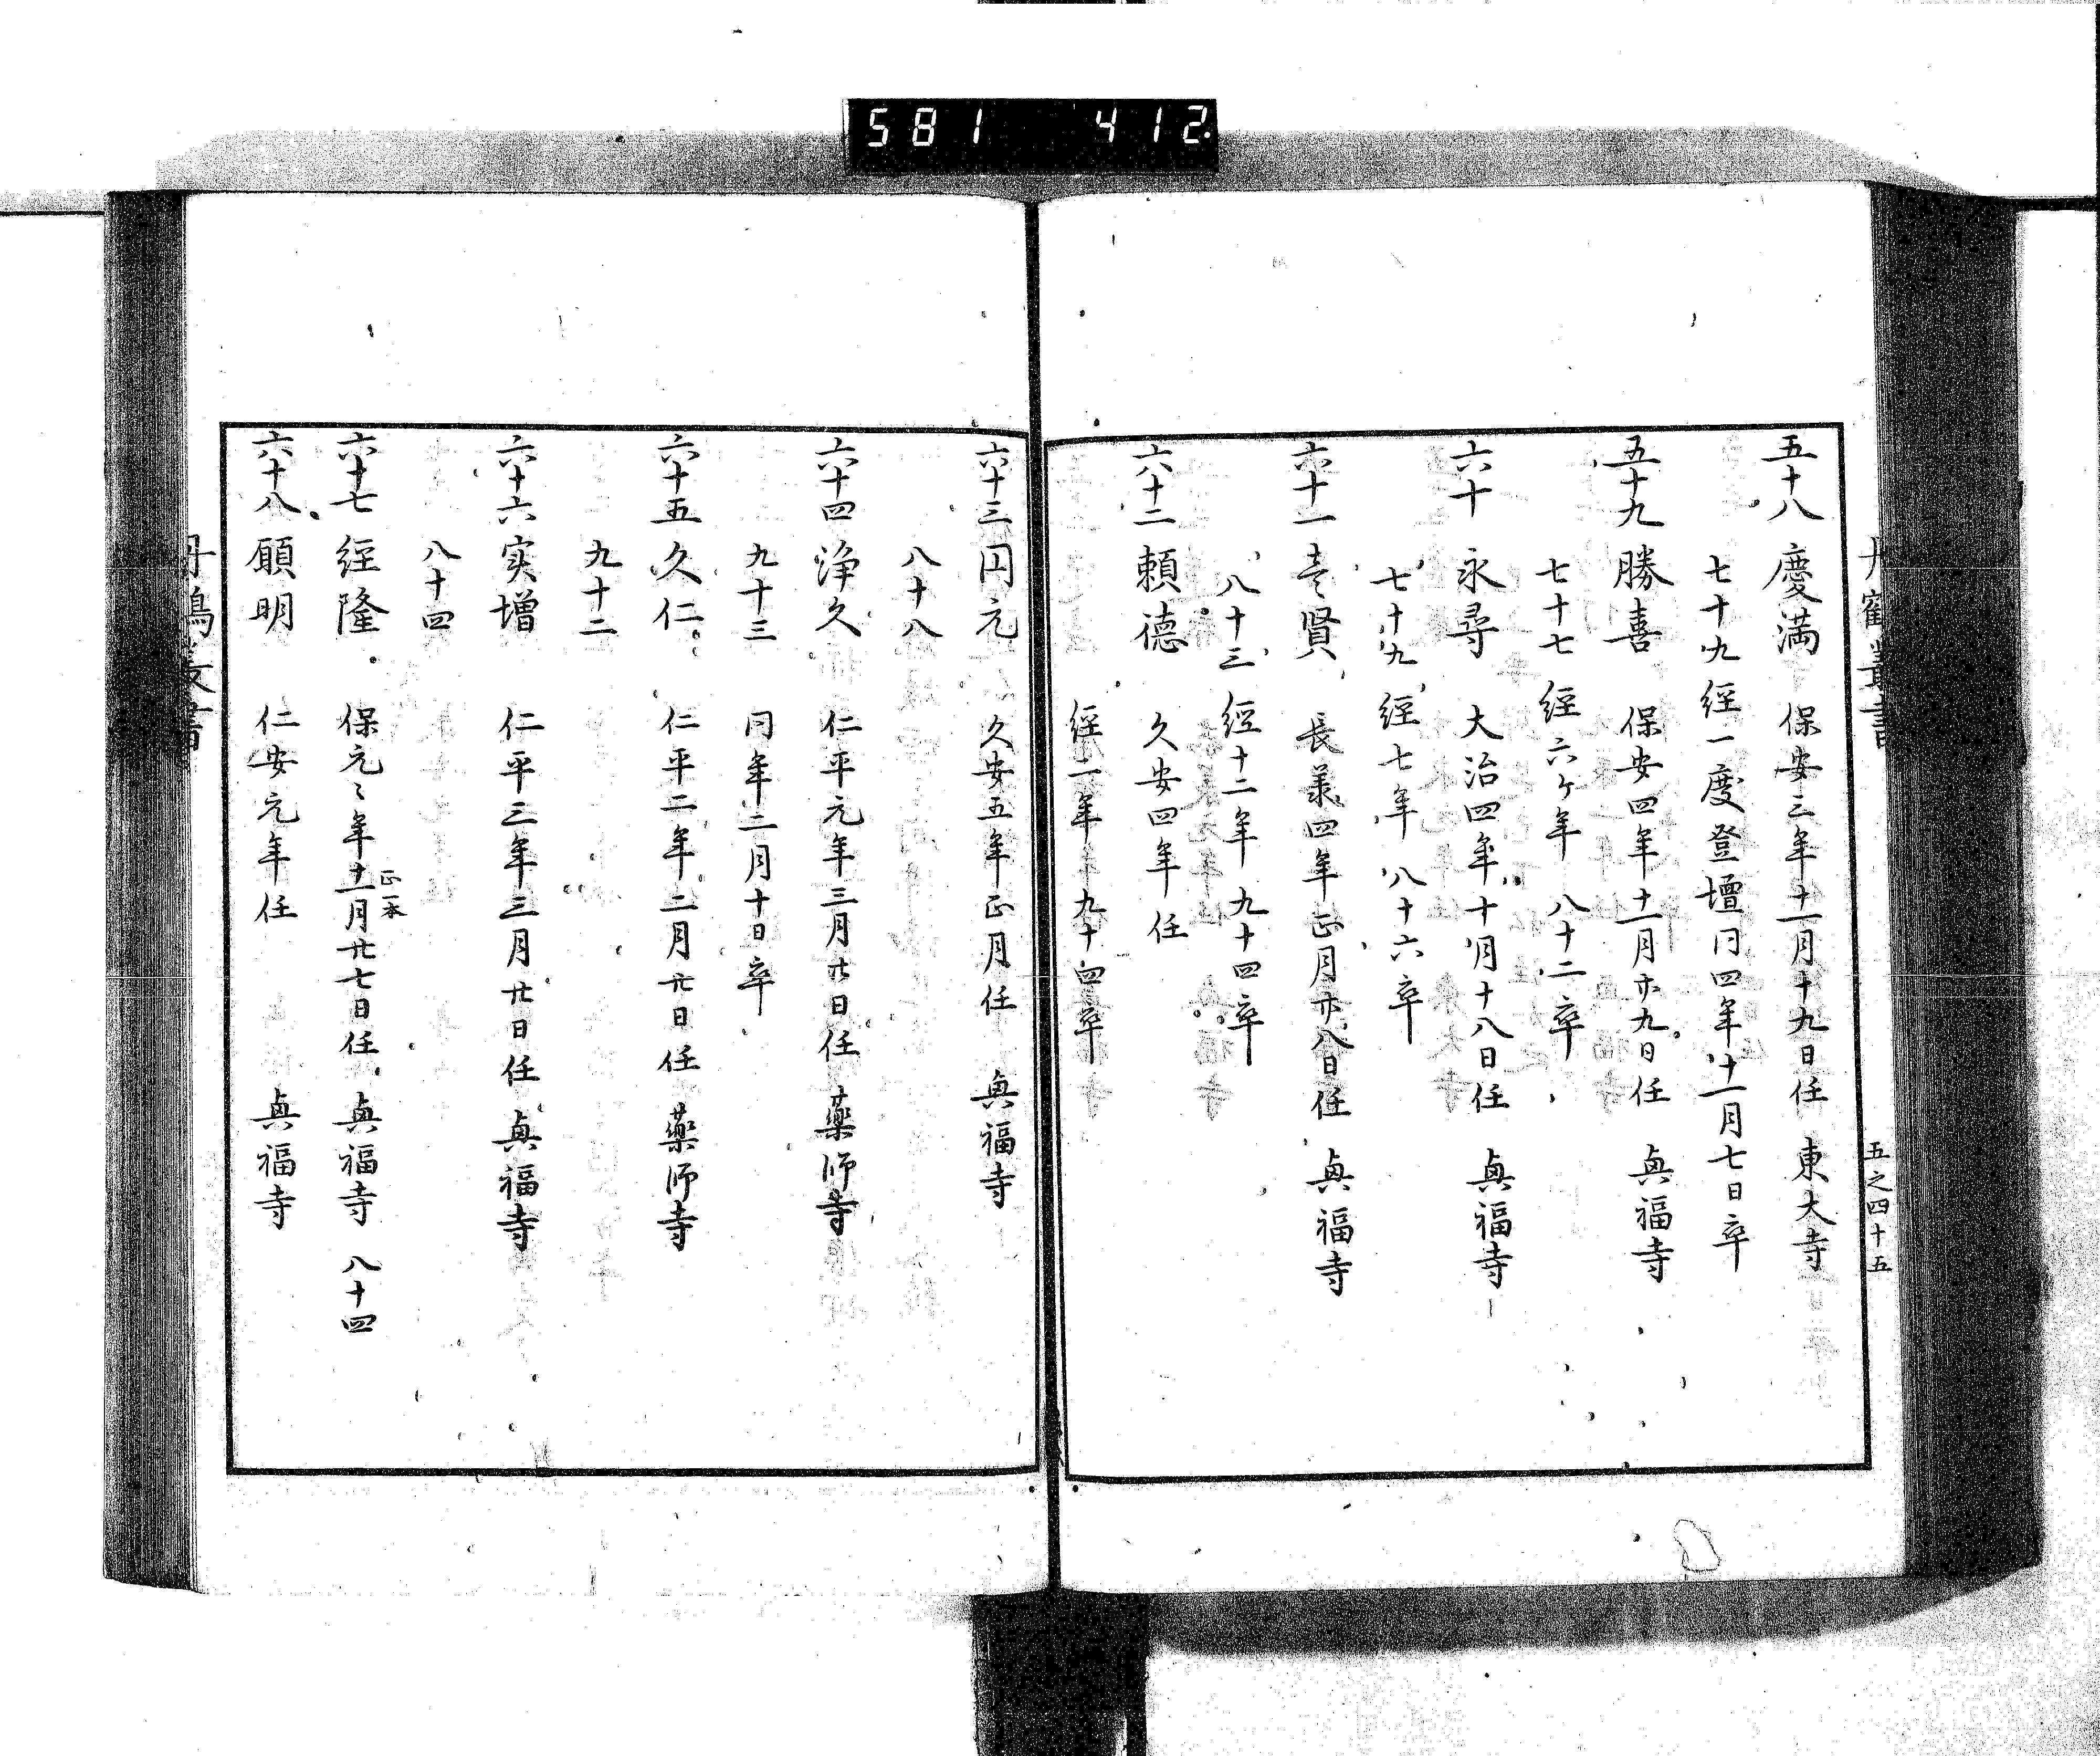 581 412
丹鶴叢書
五之四十五
五十八 慶満 保安三年十一月十九日任 東大寺
七十九 經一度登壇同四年十一月七日卒
五十九 勝喜 保安四年十一月廿九日任 興福寺
七十七 經六ケ年 八十二卒
六十 永尋 大治四年十月十八日任 興福寺
七十九 經七年 八十六卒
六十一 賢 長義四年正月廿八日任 興福寺
八十三 經十二年 九十四卒
六十二 頼德 久安四年任
經一年 九十四卒
六十三 円元 久安五年正月任 興福寺
八十八
六十四 浄久 仁平元年三月廿日任 藥師寺
九十三 同年二月十日卒
六十五 久仁 仁平二年二月廿日任 藥師寺
九十二
六十六 実増 仁平三年三月廿日任 興福寺
八十四
六十七 經隆 保元々年十一月廿七日任 興福寺 八十四
正一本
六十八 願明 仁安元年任 興福寺
丹鶴叢書